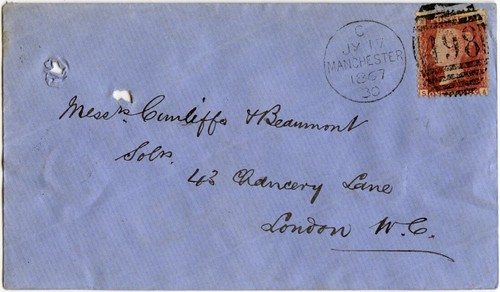 C
JY 17
MANCHESTER
1867
20
498
Messrs Cunliffs & Beaumont
Solrs.
43 Chancery Lane
London W.C.